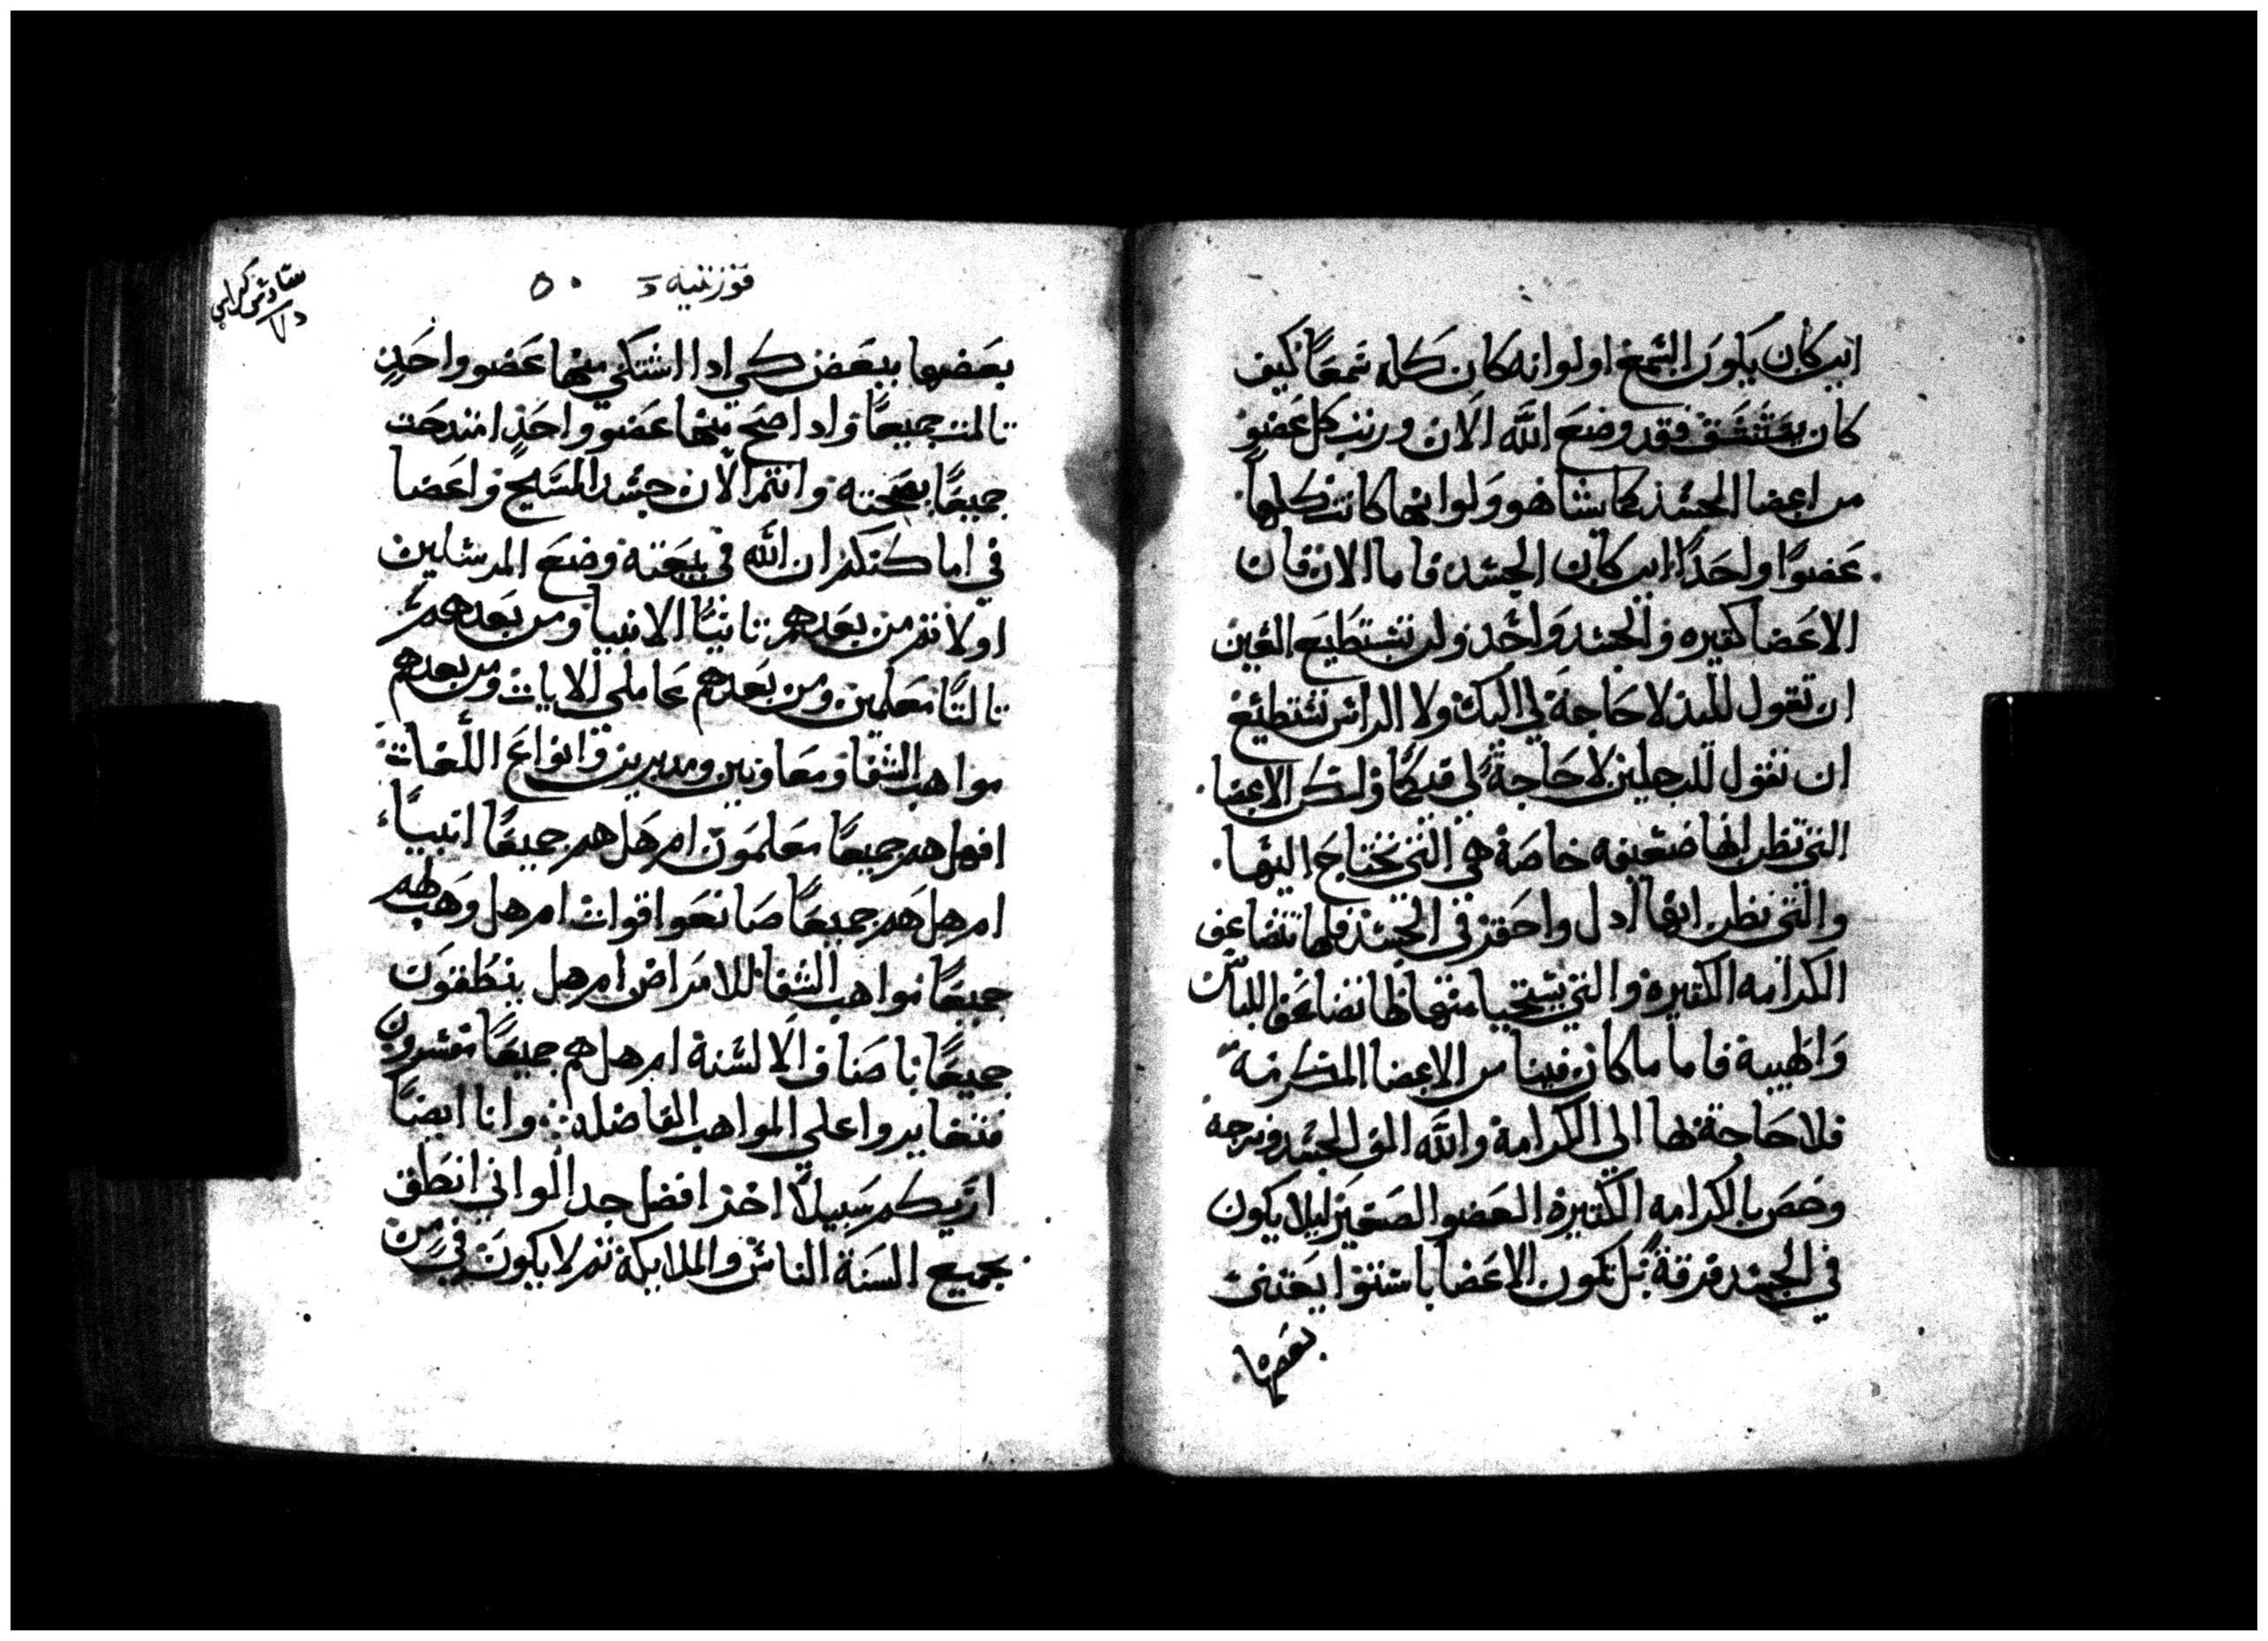 اين كان يكون السمع او لو انه كان كله سمعًا كيف
كان يستنشق فقد وضع الله الان ورتب كل عضو
من اعضا الجسد كما يشا هو ولو انها كانت كلها
عضوًا واحدًا اين كان الجسد فاما الان فان
الاعضا كتيره والجسد واحد ولن تستطيع العين
ان تقول لليد لا حاجة لي اليك ولا الراس تستطيع
ان تقول للرجلين لا حاجة لي فيكما ولكن الاعضا
التي تظن انها ضعيفه خاصة هي التي نحتاج اليها
والتي نظن انها ادل واحقر في الجسد فلها تتضاعف
الكرامه الكتيره والتي يستحيا منها لها نضاعف اللباس
والهيبة فاما ما كان فينا من الاعضا المكرمة
فلا حاجة لها الى الكرامة والله الف الجسد ومزجه
وخص بالكرامه الكتيره العضو الصغير ليلا يكون
في الجسد فرقة بل تكون الاعضا باستوا يعتني
بعضها
قورنتيه
٥٠
سادس
بعضها ببعض كي ادا اشتكي منها عضو واحد
تالمت جميعًا واد اصح منها عضو واحد امتدحت
جميعًا بصحته وانتم الان جسد المسيح واعضا
في اماكنكم ان الله في بيعته وضع المرسلين
اولا تم من بعدهم تانيًا الانبيا ومن بعدهم
تالتًا معلمين ومن بعدهم عاملي الايات ومن بعدهم
مواهب الشفا ومعاونين ومدبرين وانواع اللغات
افهل هم جميعًا معلمون ام هل هم جميعًا انبيًا
ام هل هم جميعًا صانعوا قوات ام هل وهب لهم
جميعًا مواهب الشفا للامراض ام هل ينطقون
جميعًا باصناف الالسنة ام هل هم جميعًا مفسرون
فتغايروا على المواهب الفاضله وانا ايضًا
اريكم سبيلًا اخر افضل جدا لو اني انطق
بجميع السنة الناس والملايكة تم لا يكون في من